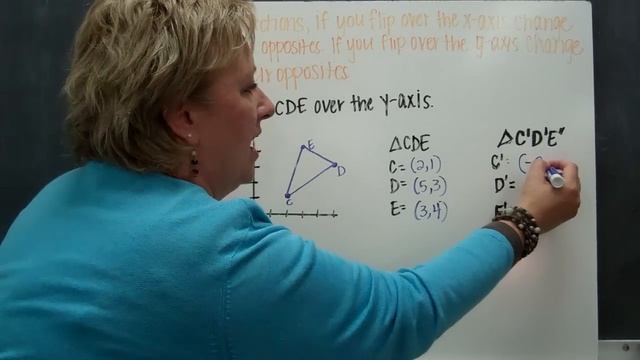 ctions, if you flip over the x-axis change
opposites. If you flip over the y-axis change
ir opposites
CDE over the y-axis.
E
D
C
△CDE
C= (2,1)
D= (5,3)
E= (3,4)
△C'D'E"
C'= (-
D'=
E'